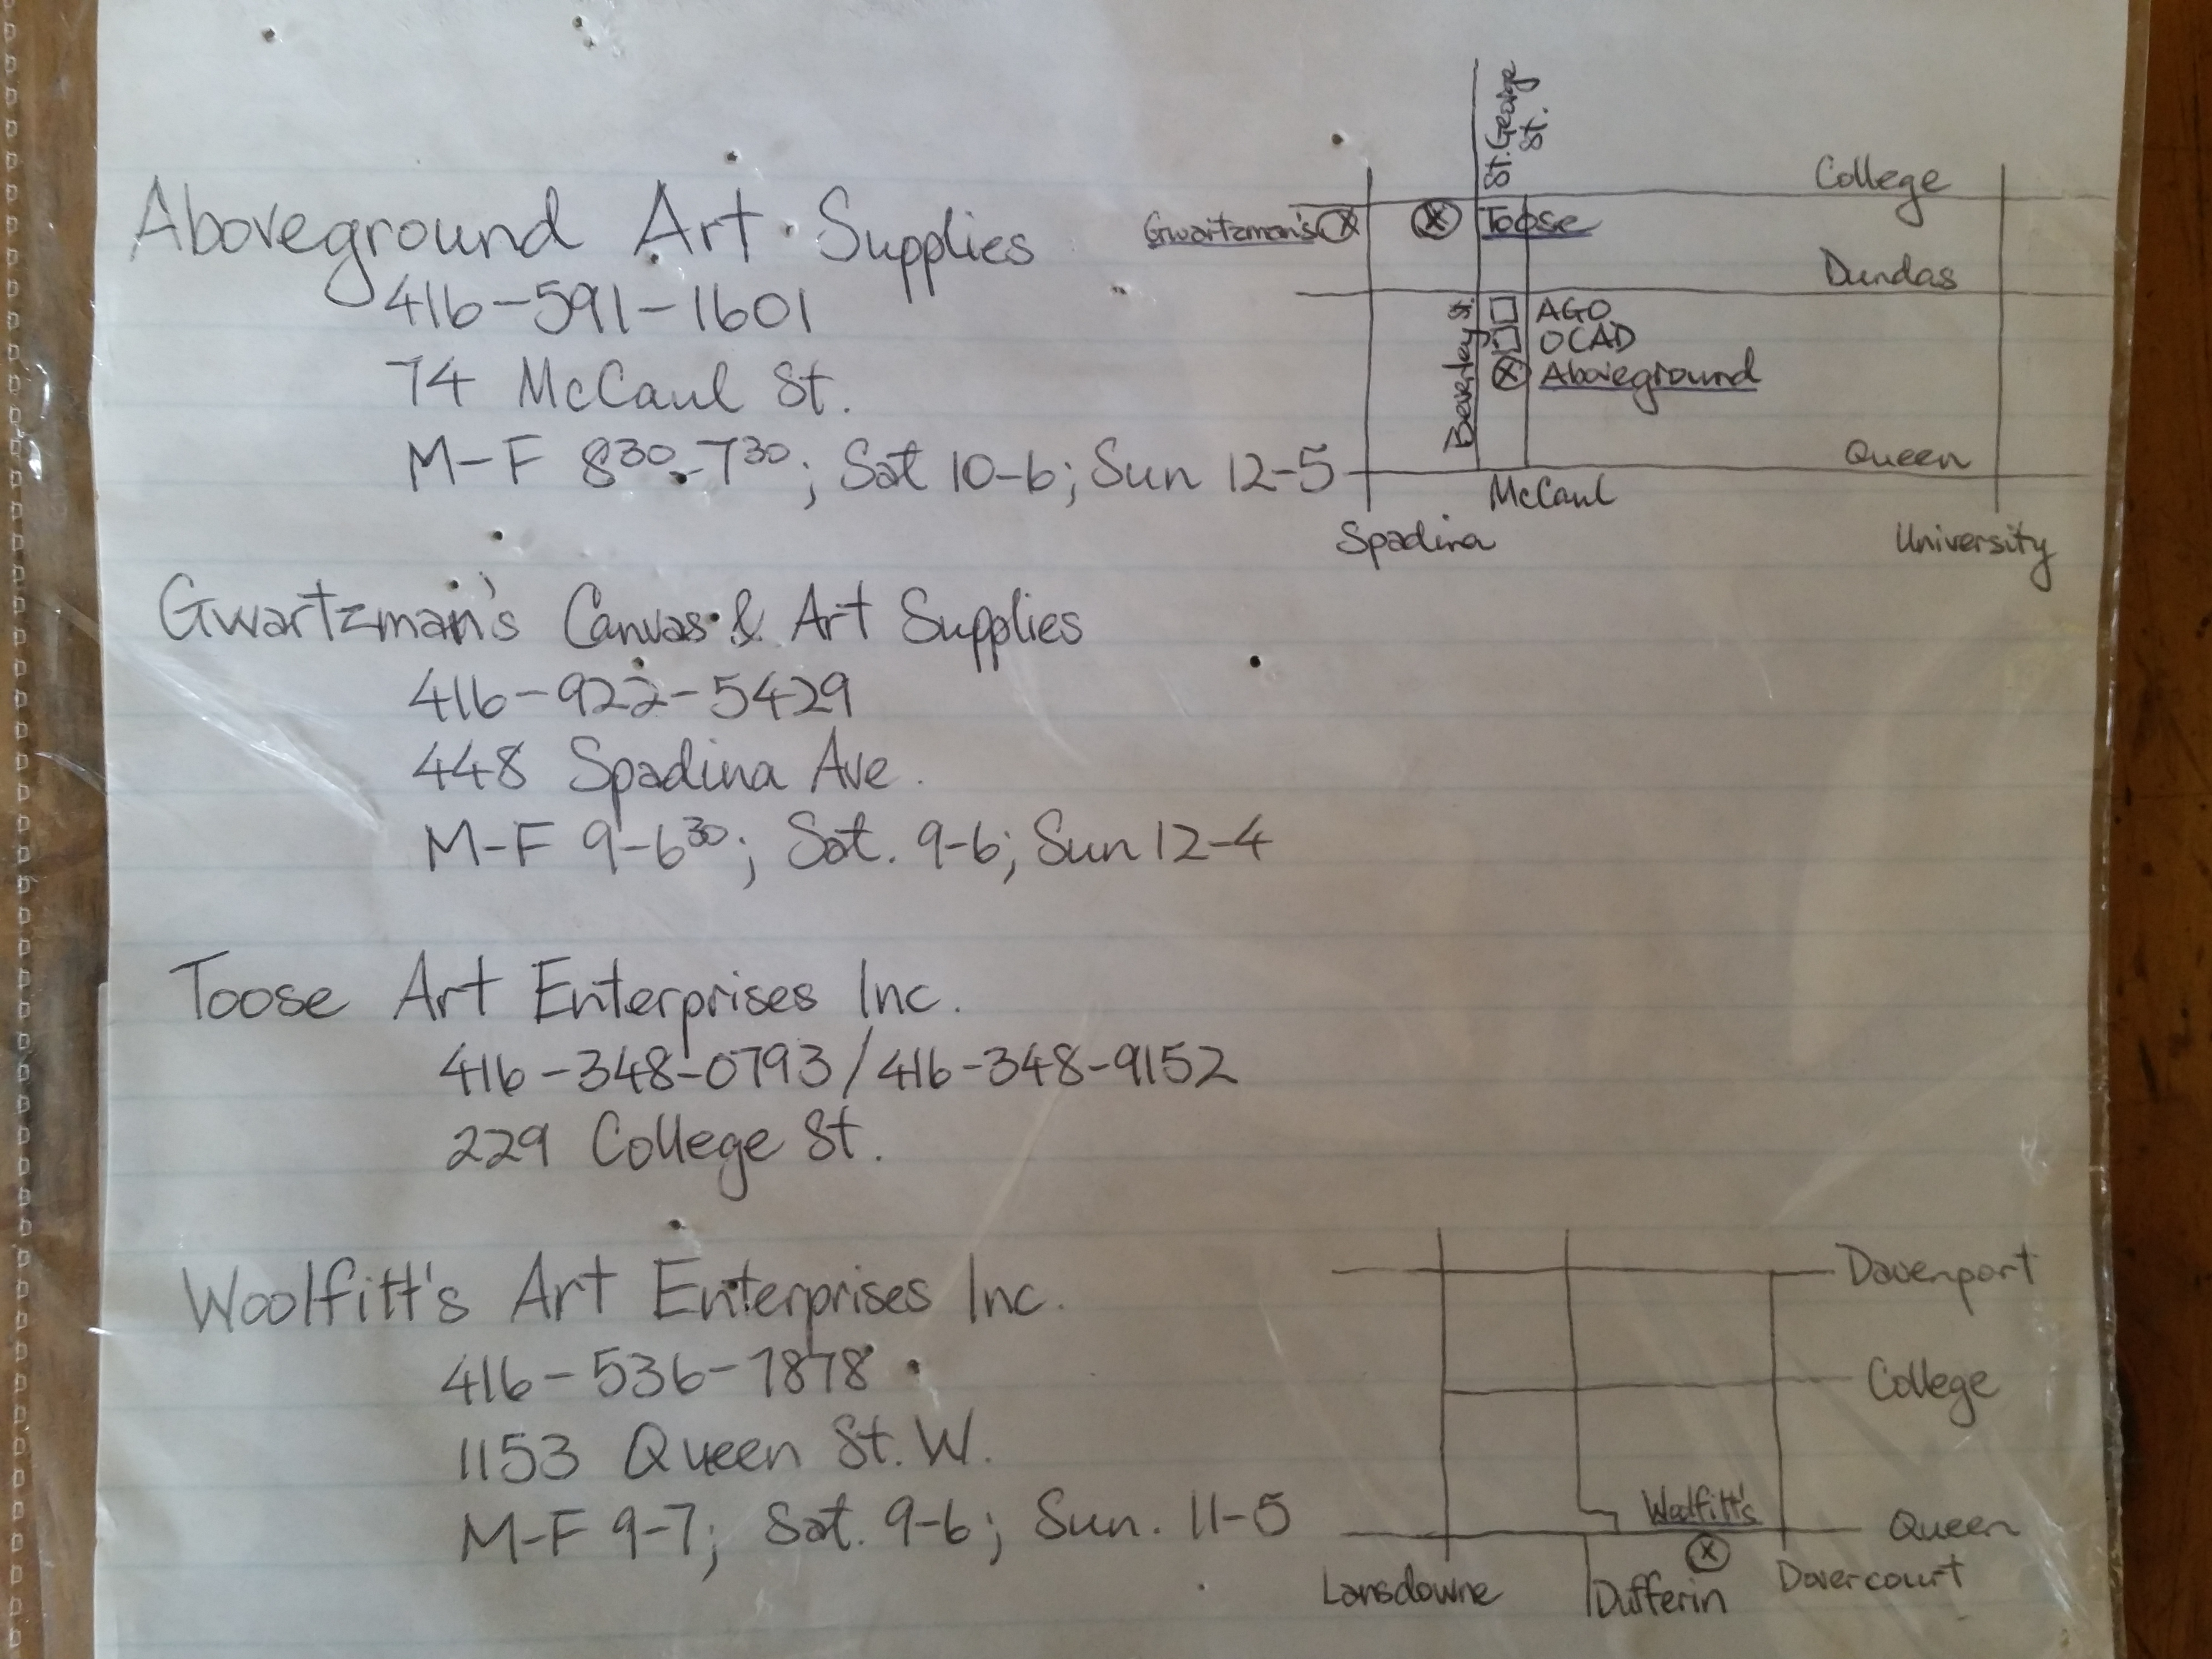 Aboveground Art Supplies
416-591-1601
74 McCaul St.
M-F 830-730; Sat 10-6; Sun 12-5
St. George
St.
College
Gwartzman's
Toose
Dundas
Beverley St.
AGO
OCAD
Aboveground
Queen
McCaul
Spadina
University
Gwartzman's Canvas & Art Supplies
416-922-5429
448 Spadina Ave.
M-F 9-630; Sat. 9-6; Sun 12-4
Toose Art Enterprises Inc.
416-348-0793/416-348-9152
229 College St.
Woolfitt's Art Enterprises Inc.
416-536-7878
1153 Queen St. W.
M-F 9-7; Sat. 9-6; Sun. 11-5
Davenport
College
Woolfitt's
Queen
Lansdowne
Dufferin
Dovercourt